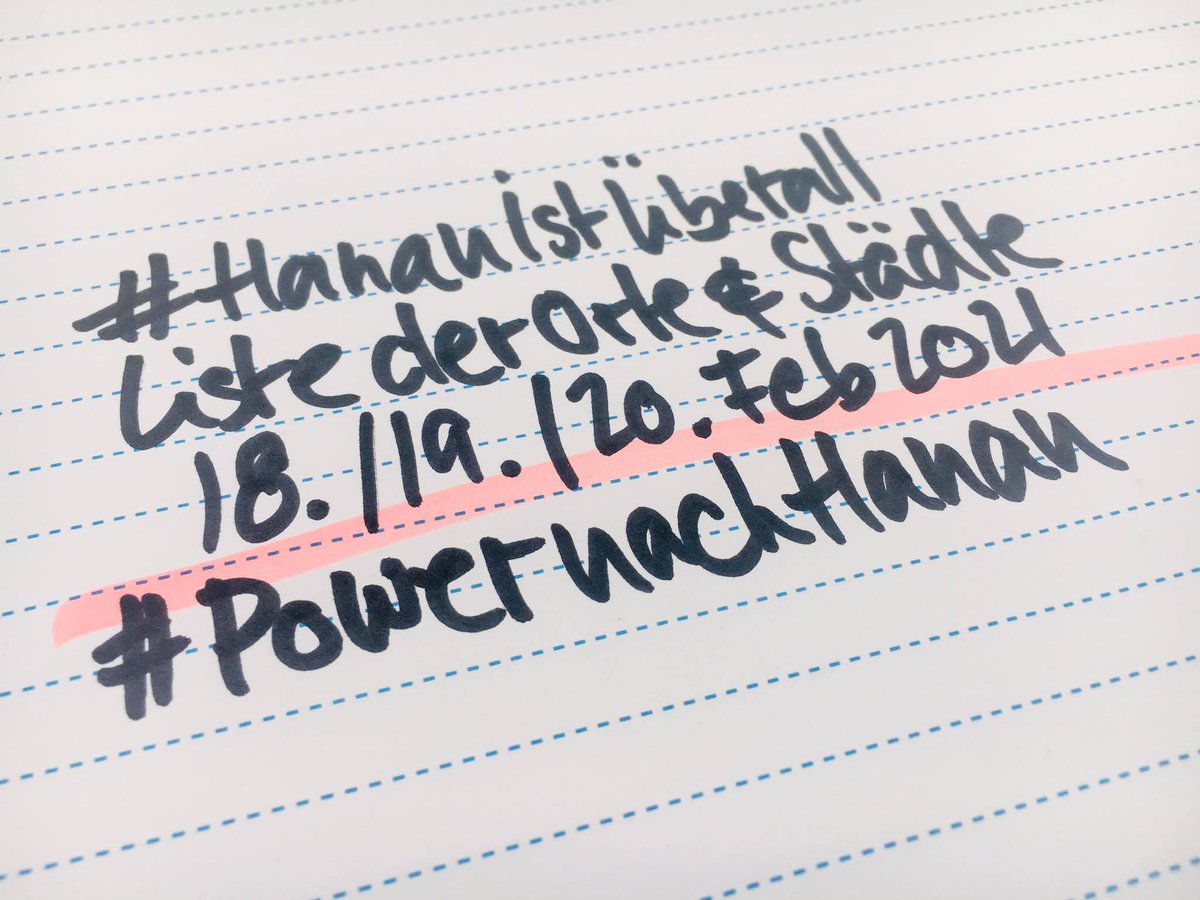 #Hanauistüberall
Liste der Orte & Städte
18./19./20. Feb 2021
#PowernachHanau